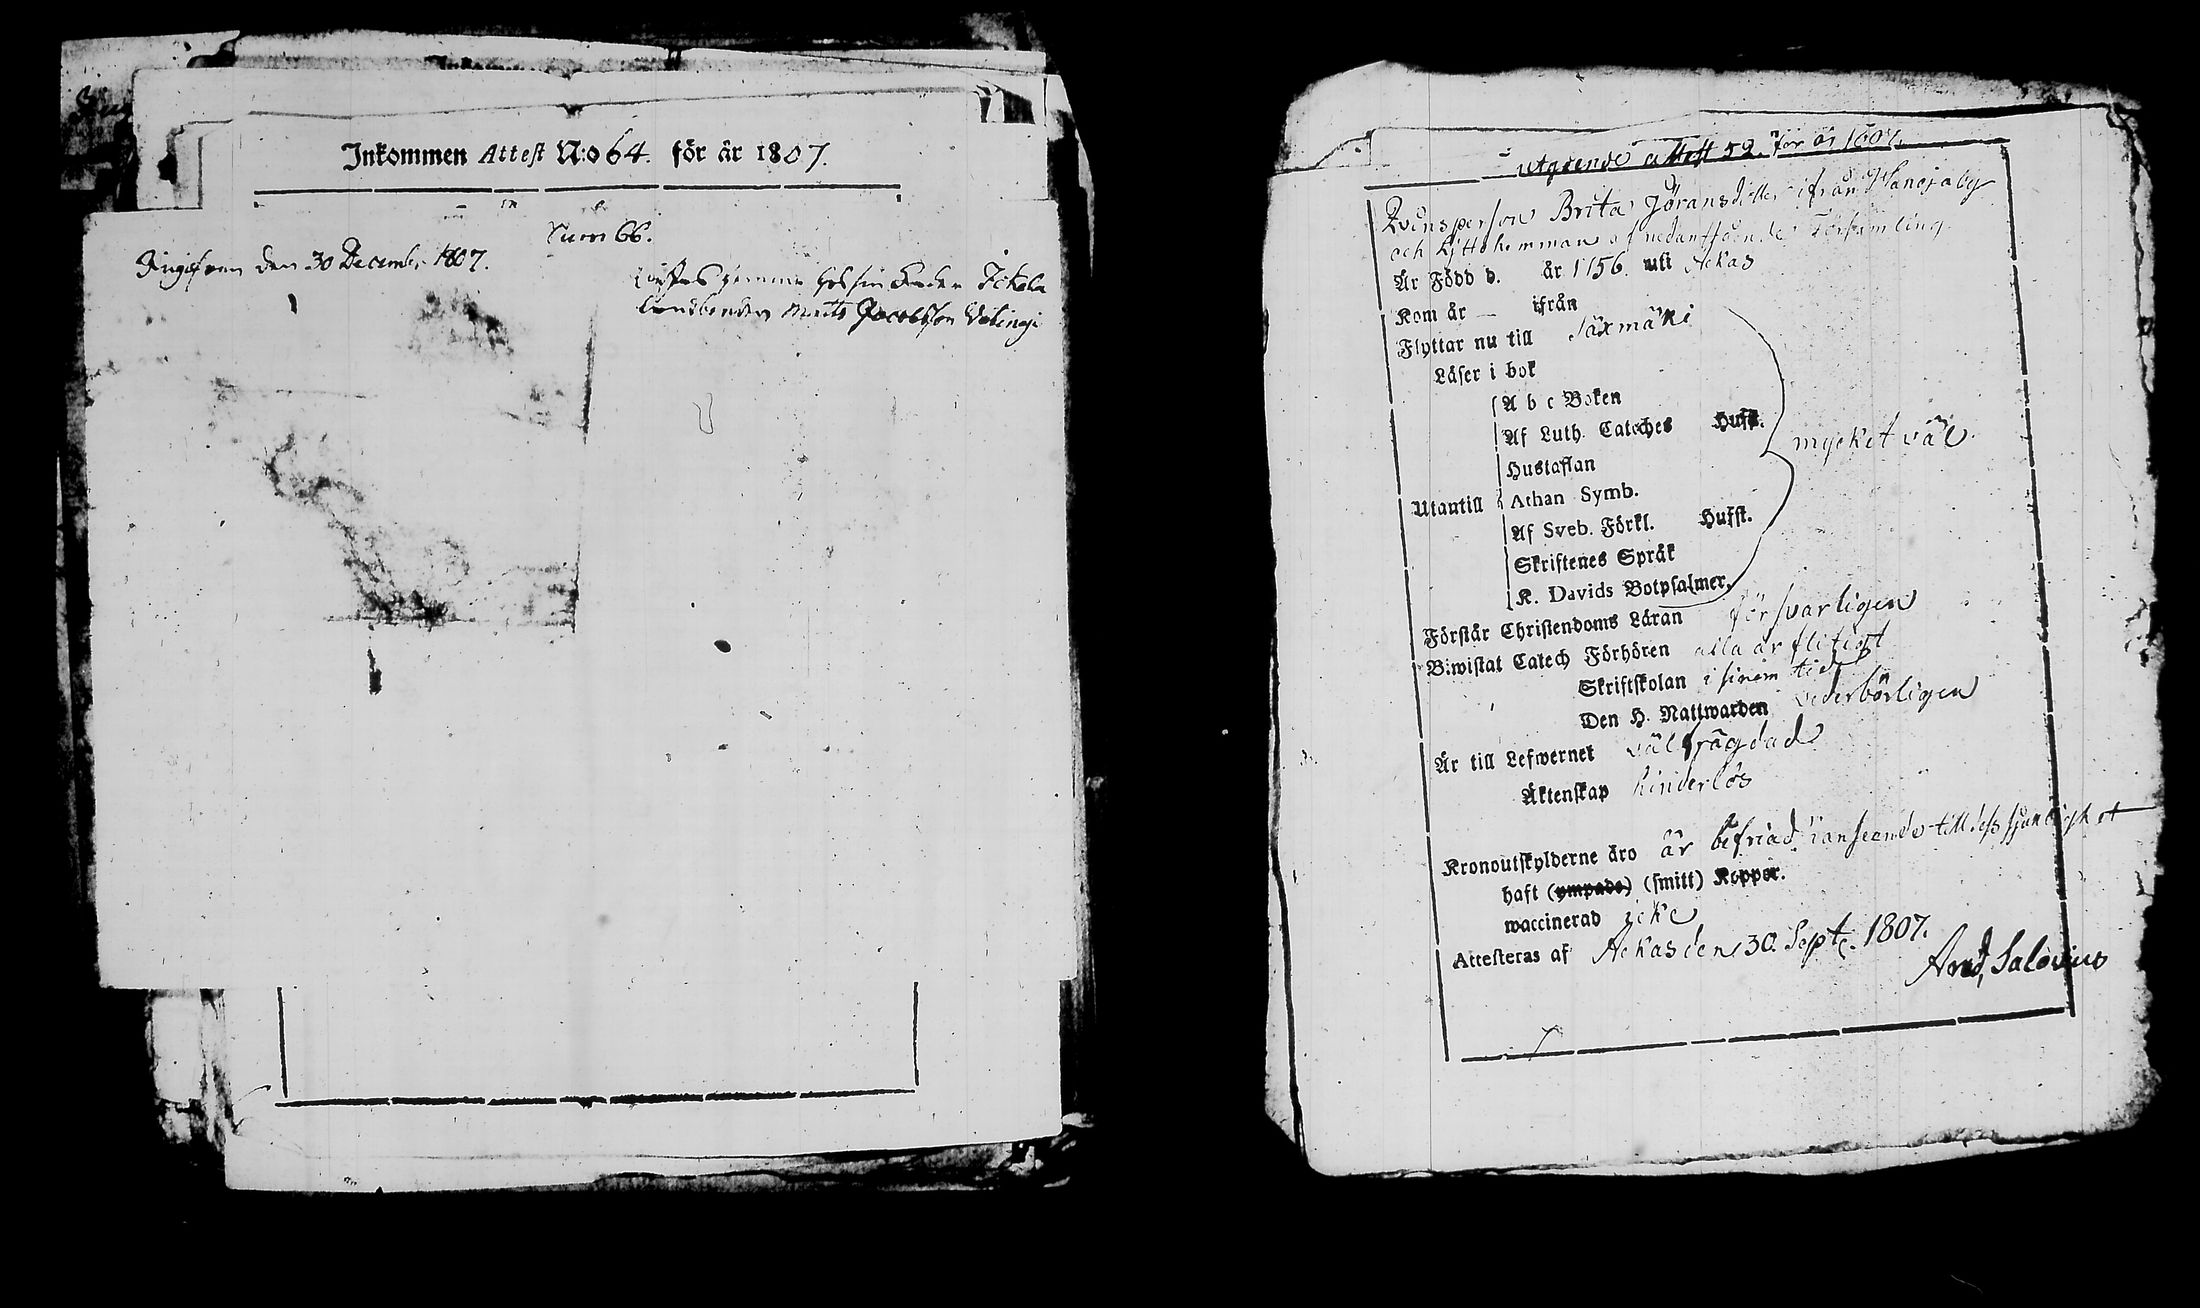 Inkommen Attest N:o 64. för år 1807.
Num 66.
den 30 December 1807.
hemma hos sin
Landbonden Matts Jacobsson
utgående attest 52. för år 1807.
Qvinsperson Brita Jöransdotter ifrån
och af nedanstående Församling.
År Född d. år 1756. uti Ackas
Kom år — ifrån
Flyttar nu till Säxmäki
Läser i bok
A b c Boken
Af Luth. Cateches Hufst.
Hustaflan
Utantill Athan Symb.
Af Sveb. Förkl. Hufst.
Skriftenes Språk
K. Davids Botpsalmer.
mycket väl
Förstår Christendoms Läran försvarligen
Biwistat Catech Förhören alla år flitigt
Skriftskolan i sinom tid
Den H. Nattwarden vederbörligen
Är till Lefwernet välfrägdad
Äktenskap hinderlös
Kronoutskylderne äro är befriad i anseende till dess sjuklighet
haft (ympade) (smitt) Koppor.
waccinerad icke
Attesteras af Ackas den 30. Septe. 1807.
Arvid Salovius